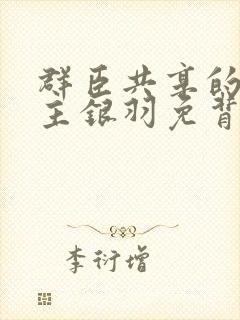 群臣共享的
主银羽免背
李衍增